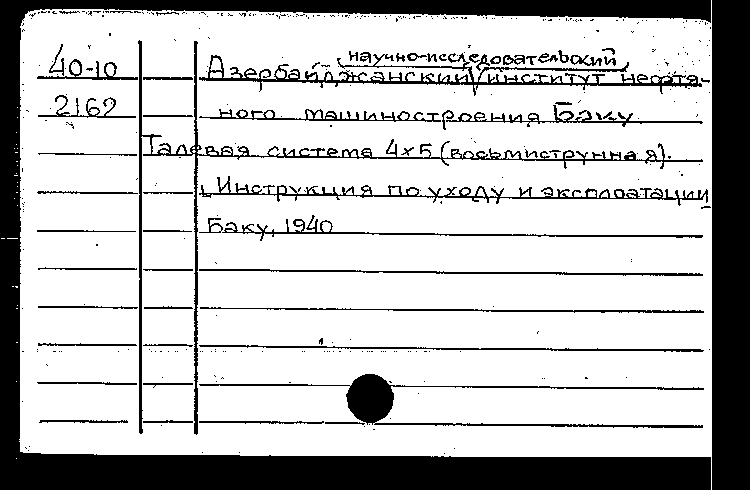 40-10 Азербайджанский научно-исследовательский институт нефтя-
2169 ного машиностроения Баку.
Талевая система 4х5 (восьмиструнная).
Инструкция по уходу и эксплоатации
Баку, 1940